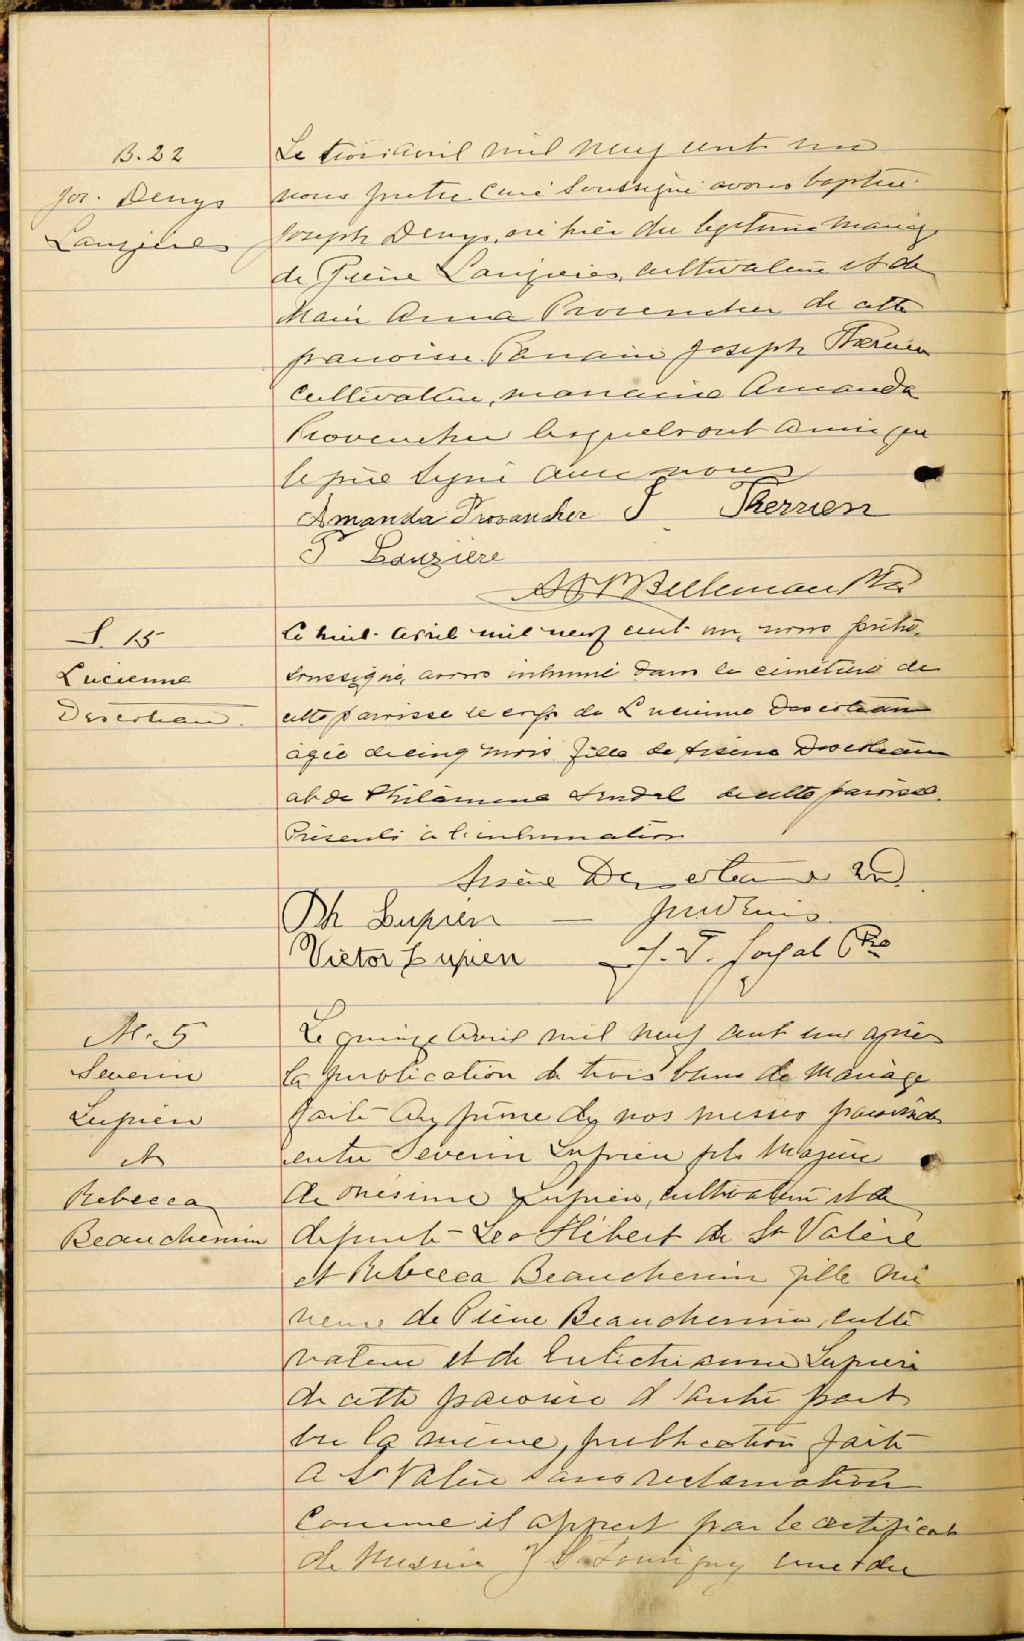 B. 22
Jos. Denys
Lauzières
Le trois avril mil neuf cent un
nous prêtre curé soussigné avons baptisé
Joseph Denys, né hier du légitime mariage
de Pierre Lauzières, cultivateur et de
Marie Anna Provencher de cette
paroisse. Parrain Joseph Therrien
cultivateur, marraine Amanda
Provencher lesquels ont ainsi que
le père signé avec nous
Amanda Provancher J Therrien
P Lauzière
Bellemare Ptre
S. 15
Lucienne
Descoteau.
Le huit avril mil neuf cent un, nous prêtre
soussigné, avons inhumé dans le cimetière de
cette paroisse le corps de Lucienne Descoteau
agée de cinq mois fille de Arsène Descoteau
et de Philomène de cette paroisse.
Présents à l'inhumation
Arsène
Ph Lupien
Victor Lupien J. T. Joyal Ptre
M. 5
Severin
Lupien
et
Rebecca
Beauchemin
Le quinze avril mil neuf cent un après
la publication de trois bans de mariage
faite au prône de nos messes paroissiales
entre Severin Lupien fils majeur
de Onésime Lupien, cultivateur et de
défunte Léo Hébert de St Valère
et Rebecca Beauchemin fille mi
neure de Pierre Beauchemin, culti
vateur et de Lupien
de cette paroisse d'autre part
vu la même publication faite
a St Valère sans réclamation
comme il appert par le certificat
de Messire J curé du